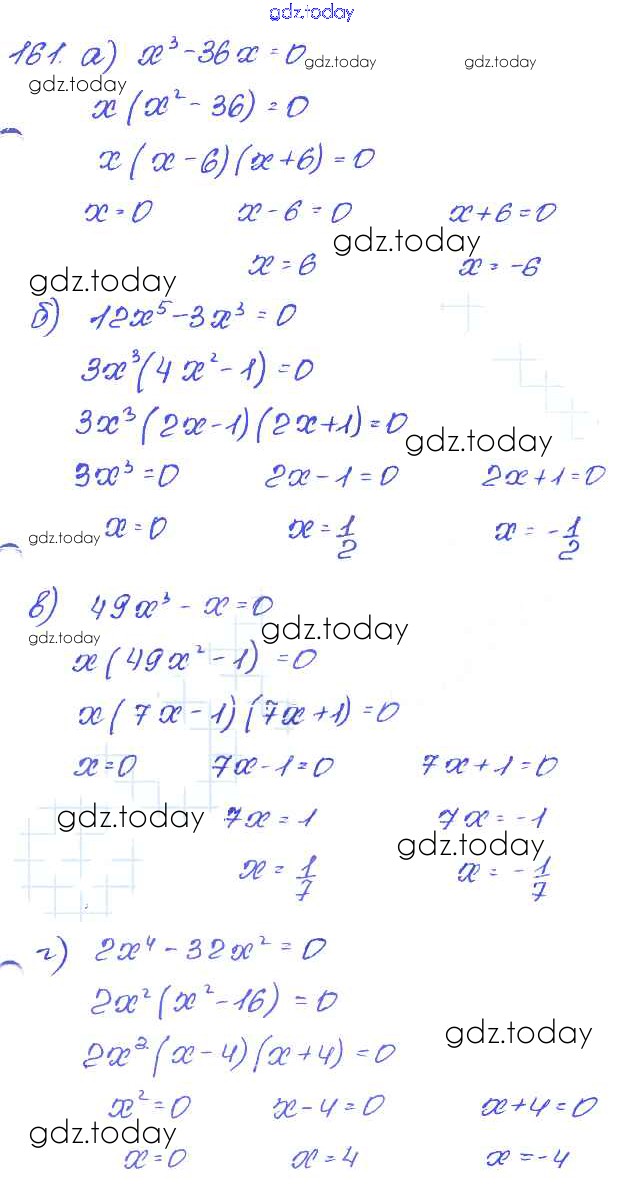 gdz.today
161. а) x³ - 36x = 0 gdz.today gdz.today
gdz.today
x(x² - 36) = 0
x(x - 6)(x + 6) = 0
x = 0 x - 6 = 0 x + 6 = 0
gdz.today
x = 6 x = -6
gdz.today
б) 12x⁵ - 3x³ = 0
3x³(4x² - 1) = 0
3x³(2x - 1)(2x + 1) = 0
gdz.today
3x³ = 0 2x - 1 = 0 2x + 1 = 0
gdz.today x = 0 x = 1/2 x = -1/2
в) 49x³ - x = 0
gdz.today gdz.today
x(49x² - 1) = 0
x(7x - 1)(7x + 1) = 0
x = 0 7x - 1 = 0 7x + 1 = 0
gdz.today 7x = 1 7x = -1
gdz.today
x = 1/7 x = -1/7
г) 2x⁴ - 32x² = 0
2x²(x² - 16) = 0
gdz.today
2x²(x - 4)(x + 4) = 0
x² = 0 x - 4 = 0 x + 4 = 0
gdz.today
x = 0 x = 4 x = -4